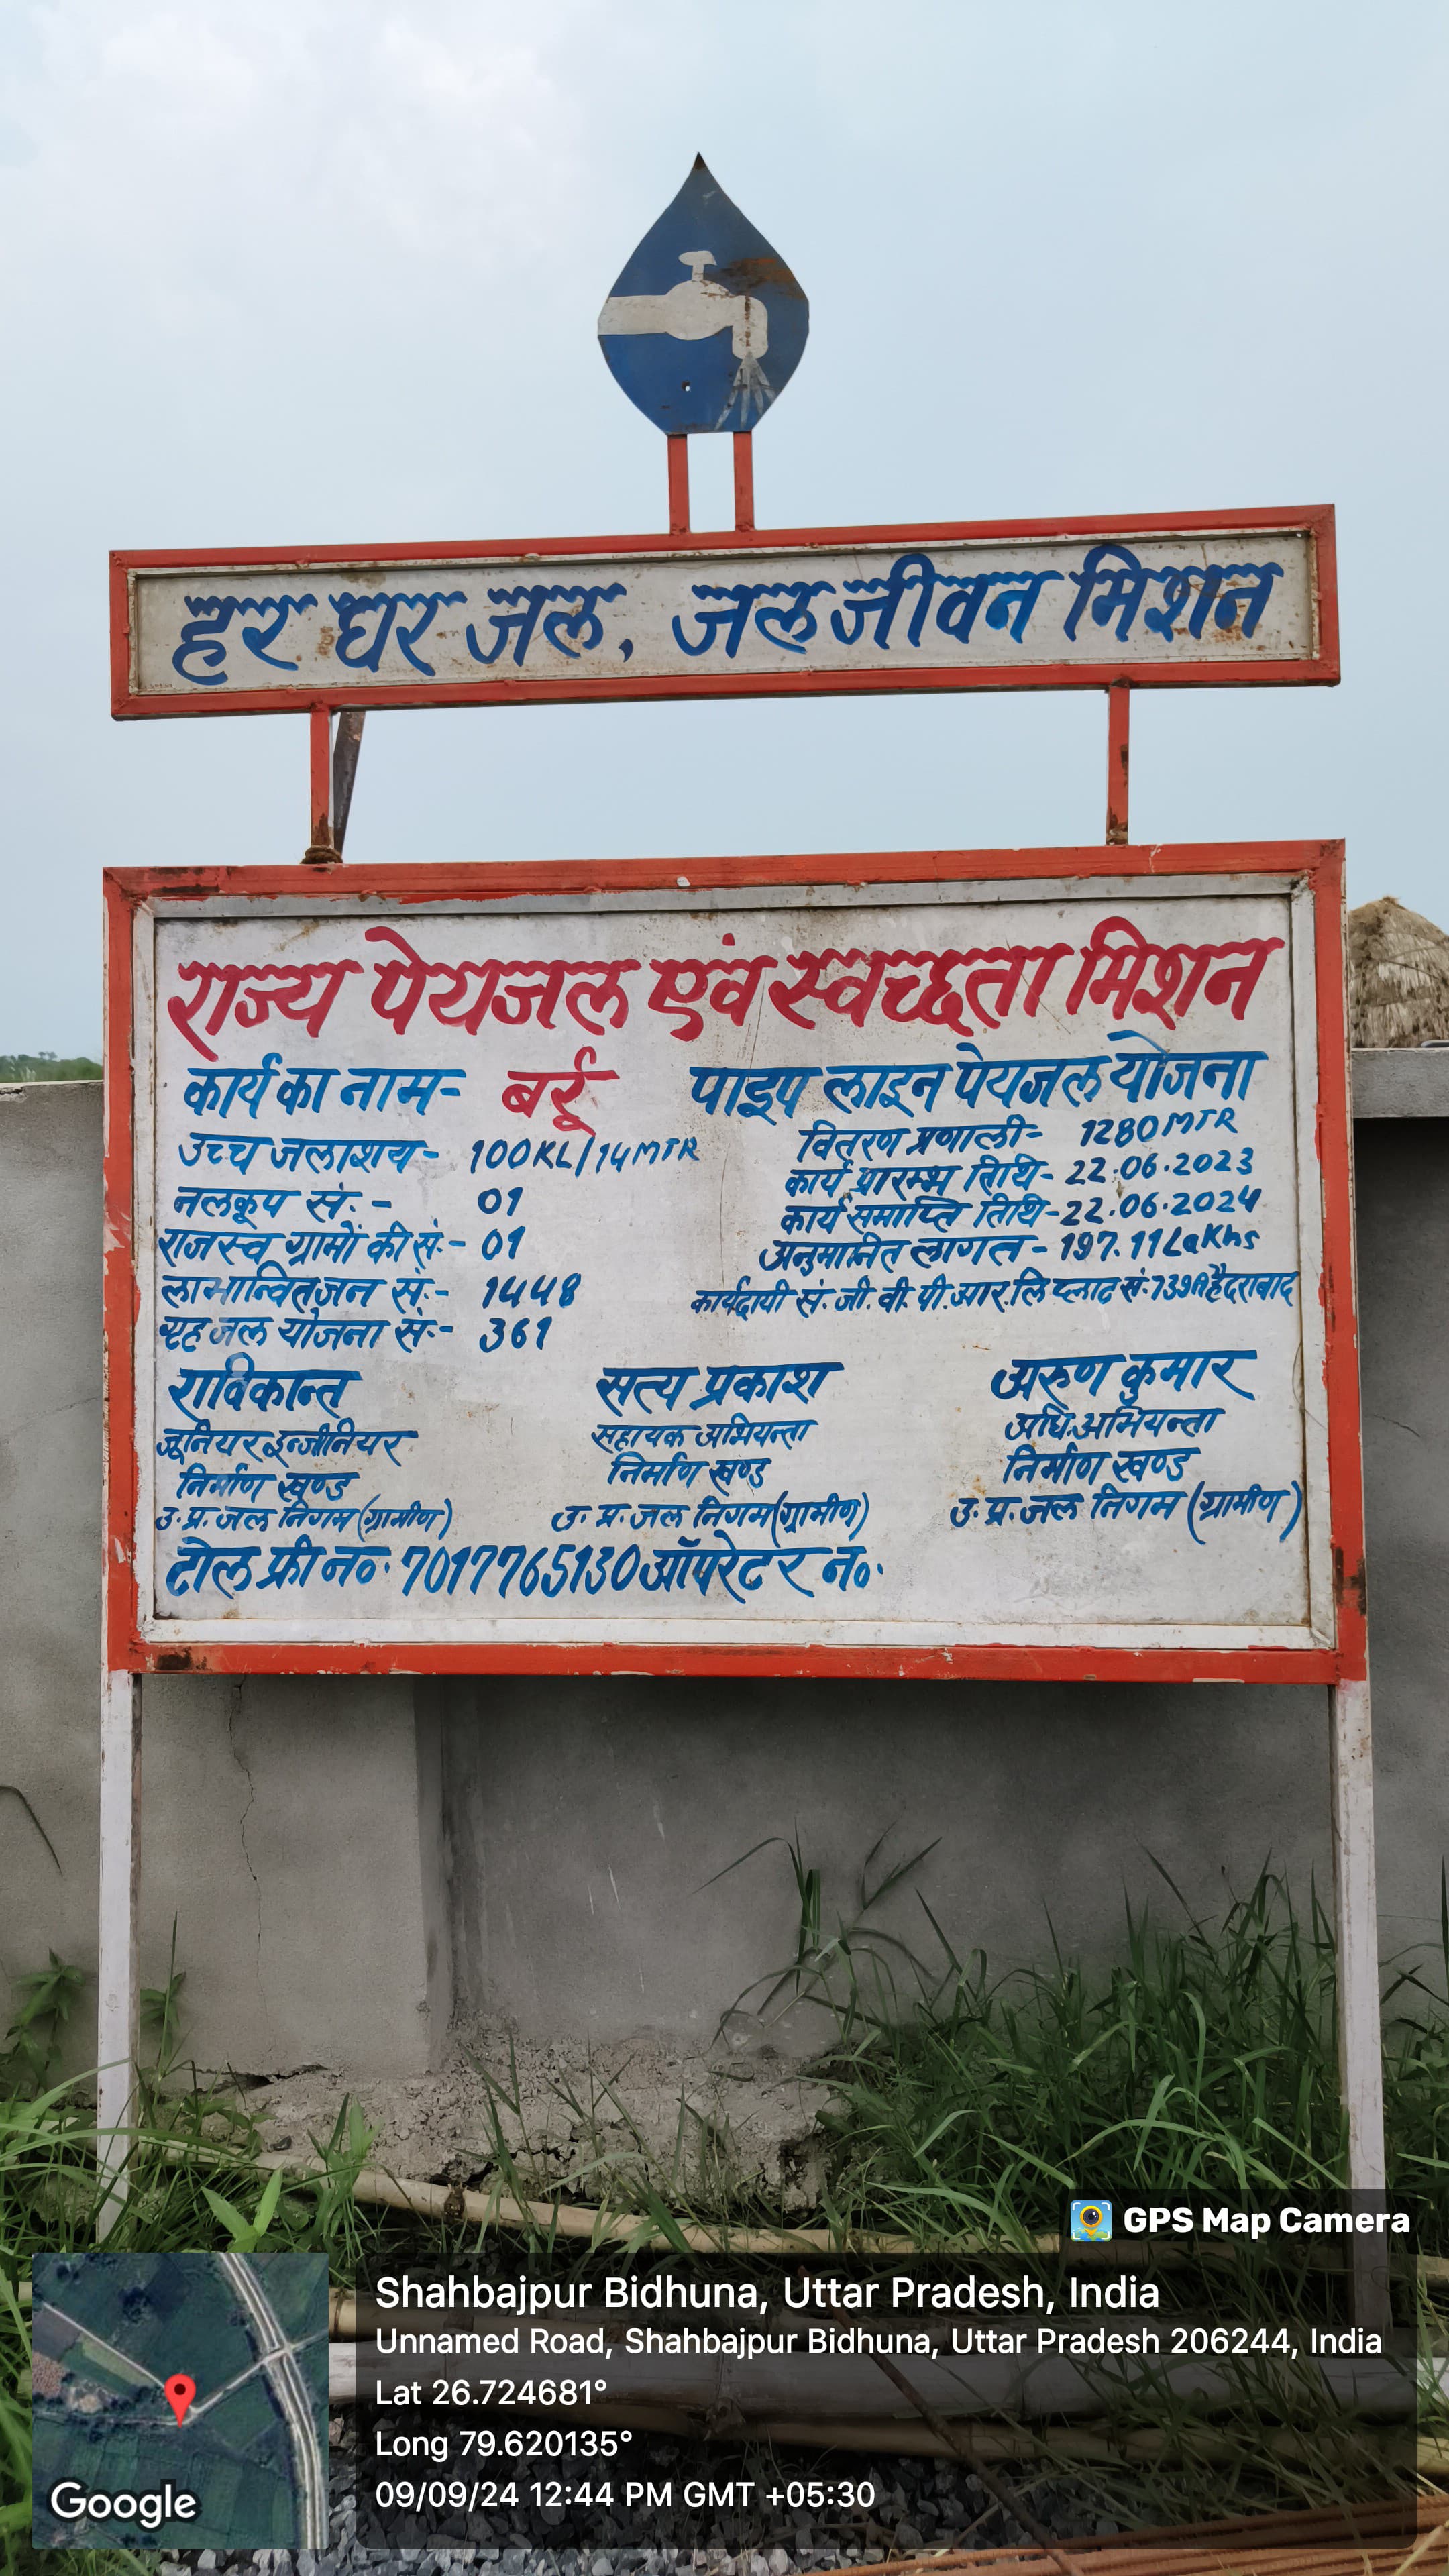 हर घर जल, जल जीवन मिशन
राज्य पेयजल एवं स्वच्छता मिशन
कार्य का नाम- बर्रू पाइप लाइन पेयजल योजना
उच्च जलाशय- 100KL/14MTR
नलकूप सं.- 01
राजस्व ग्रामों की सं.- 01
लाभान्वित जन सं.- 1448
गृह जल योजना सं.- 361
वितरण प्रणाली- 1280MTR
कार्य प्रारम्भ तिथि- 22.06.2023
कार्य समाप्ति तिथि- 22.06.2024
अनुमानित लागत- 197.11Lakhs
कार्यदायी सं. जी. वी. पी. आर. लि प्लाट सं. 739A हैदराबाद
राविकान्त
जूनियर इन्जीनियर
निर्माण खण्ड
उ. प्र. जल निगम (ग्रामीण)
सत्य प्रकाश
सहायक अभियन्ता
निर्माण खण्ड
उ. प्र. जल निगम (ग्रामीण)
अरुण कुमार
अधि. अभियन्ता
निर्माण खण्ड
उ. प्र. जल निगम (ग्रामीण)
टोल फ्री न०. 7017765130 ऑपरेटर न०.
GPS Map Camera
Shahbajpur Bidhuna, Uttar Pradesh, India
Unnamed Road, Shahbajpur Bidhuna, Uttar Pradesh 206244, India
Lat 26.724681°
Long 79.620135°
09/09/24 12:44 PM GMT +05:30
Google